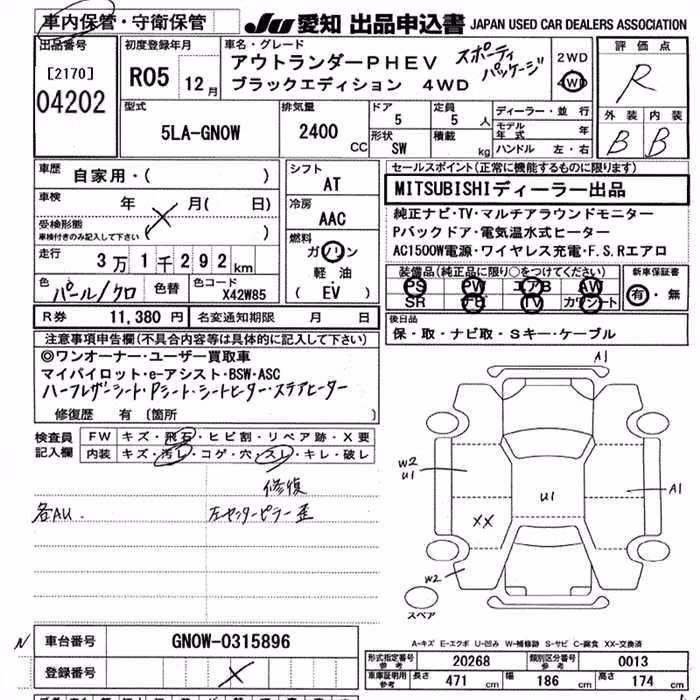 車内保管・守衛保管
JU 愛知 出品申込書 JAPAN USED CAR DEALERS ASSOCIATION
出品番号
[2170]
04202
初度登録年月
R05 12月
車名・グレード
アウトランダーPHEV スポーティ
ブラックエディション 4WD パッケージ
2WD
4WD
評価点
R
外装 内装
B B
型式
5LA-GN0W
排気量
2400 CC
ドア
5
形状
SW
定員
5 人
積載
kg
ディーラー・並行
モデル年式 年
ハンドル 左・右
車歴
自家用・( )
車検
年 月( 日)
受検形態
車検付きのみ記入して下さい
走行
3万1千292km
色
パール/クロ
色替
色コード
X42W85
シフト
AT
冷房
AAC
燃料
ガソリン
軽油
( EV )
セールスポイント(正常に機能するものに限ります)
MITSUBISHIディーラー出品
純正ナビ・TV・マルチアラウンドモニター
Pバックドア・電気温水式ヒーター
AC1500W電源・ワイヤレス充電・F.S.Rエアロ
装備品(純正品に限り○をつけてください)
PS PW エアB AW
SR ナビ TV カワシート
新車保証書
有・無
R券 11,380 円 名変通知期限 月 日
後日品
保・取・ナビ取・Sキー・ケーブル
注意事項申告欄(不具合内容等は具体的に記入して下さい)
◎ワンオーナー・ユーザー買取車
マイパイロット・e-アシスト・BSW・ASC
ハーフレザーシート・Pシート・シートヒーター・ステアヒーター
修復歴 有 〔箇所 〕
検査員記入欄
FW キズ・飛石・ヒビ割・リペア跡・X要
内装 キズ・汚レ・コゲ・穴・スレ・キレ・破レ
修復
各AU. 左センターピラー歪
A1
W2
U1
U1
A1
XX
W2
スペア
N
車台番号 GN0W-0315896
登録番号 X
A-キズ E-エクボ U-凹み W-補修跡 S-サビ C-腐食 XX-交換済
形式指定番号 参考 20268 類別区分番号 参考 0013
車庫証明用 参考 長さ 471 cm 幅 186 cm 高さ 174 cm